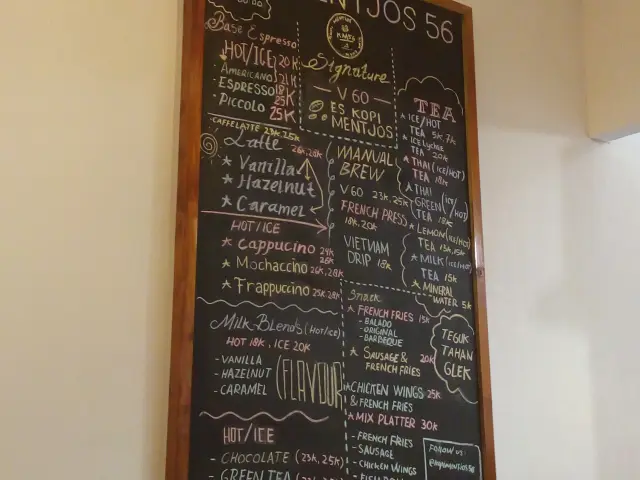 MENTJOS 56
Base Espresso
HOT/ICE 20K
AMERICANO 21K
ESPRESSO 18K
PICCOLO 25K
25K
CAFFELATTE 23K, 25K
Latte 26K, 28K
★ Vanilla
★ Hazelnut
★ Caramel
HOT/ICE
★ Cappucino 24K
26K
★ Mochaccino 26K, 28K
★ Frappuccino 25K, 28K
Milk Blends (Hot/Ice)
HOT 18K, ICE 20K
- VANILLA
- HAZELNUT
- CARAMEL
(FLAVOUR
HOT/ICE
- CHOCOLATE (23K, 25K)
- GREEN TEA
Signature
— V60 —
ES KOPI
MENTJOS
MANUAL
BREW
V60 23K, 25K
FRENCH PRESS
18K, 20K
VIETNAM
DRIP 18K
TEA
★ ICE/HOT
TEA 5K, 7K
★ ICE Lychee
TEA 20K
★ THAI (ICE/HOT)
TEA 18K
★ THAI
GREEN (ICE/HOT)
TEA 18K
★ LEMON (ICE/HOT)
TEA 13K, 15K
★ MILK (ICE/HOT)
TEA 15K
★ MINERAL
WATER 5K
Snack
★ FRENCH FRIES 15K
- BALADO
- ORIGINAL
- BARBEQUE
★ SAUSAGE & 20K
FRENCH FRIES
★ CHICKEN WINGS 25K
& FRENCH FRIES
★ MIX PLATTER 30K
- FRENCH FRIES
- SAUSAGE
- CHICKEN WINGS
TEGUK
TAHAN
GLEK
FOLLOW US: